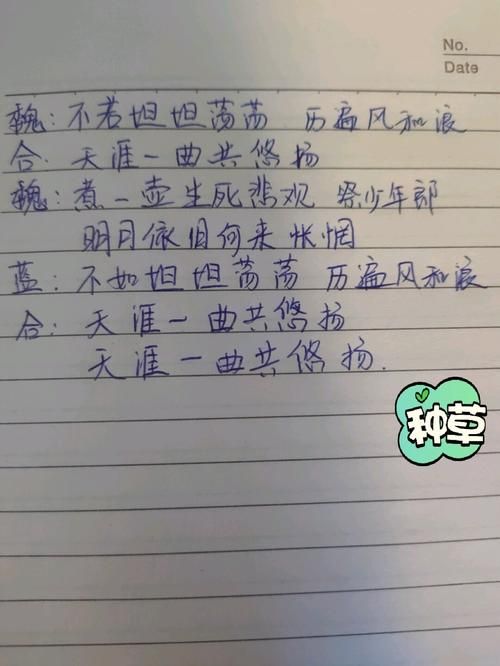 No.
Date
魏：不若坦坦荡荡 历遍风和浪
合：天涯一曲共悠扬
魏：煮一壶生死悲观 祭少年郎
明月依旧何来怅惘
蓝：不如坦坦荡荡 历遍风和浪
合：天涯一曲共悠扬
天涯一曲共悠扬.
种草